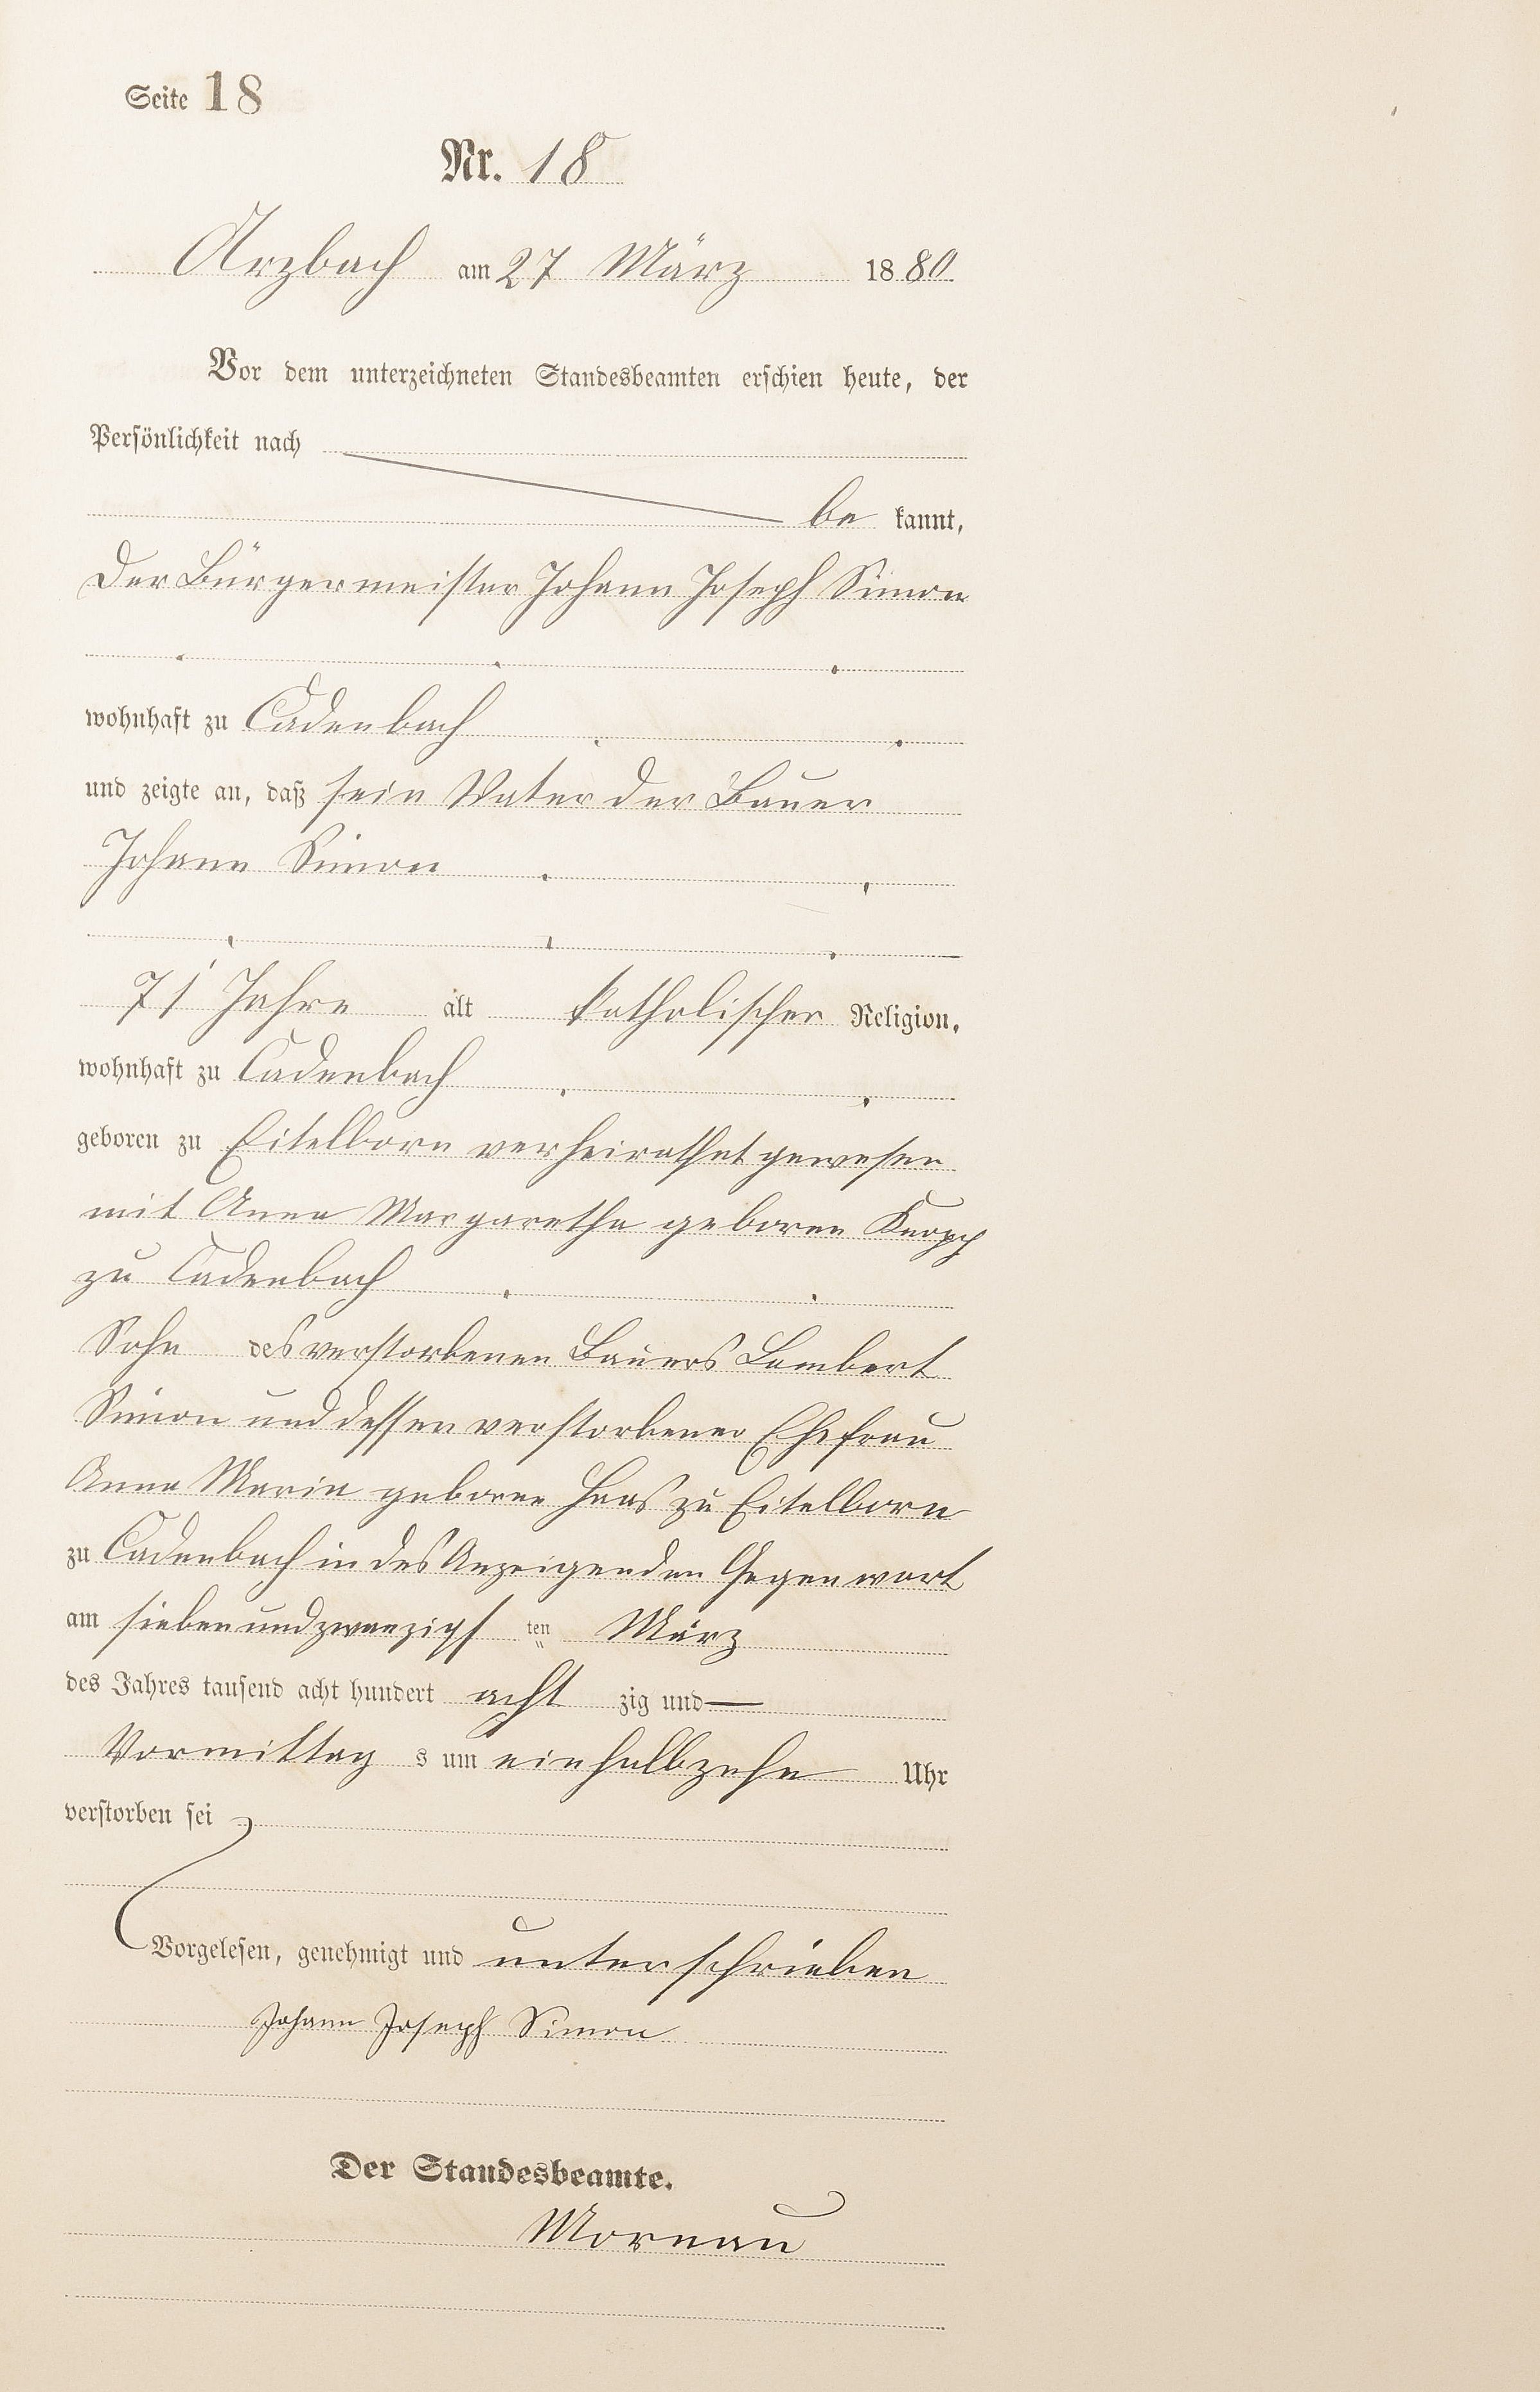 Seite 18
Nr. 18
Arzbach am 27 März 1880.
Vor dem unterzeichneten Standesbeamten erschien heute, der
Persönlichkeit nach
be kannt,
der Bürgermeister Johann Joseph Simon
wohnhaft zu Cadenbach
und zeigte an, daß sein Vater der Bauer
Johann Simon
71 Jahre alt katholischer Religion,
wohnhaft zu Cadenbach
geboren zu Eitelborn verheirathet gewesen
mit Anna Margaretha geboren Knopp
zu Cadenbach
Sohn des verstorbenen Bauers Lambert
Simon und dessen verstorbener Ehefrau
Anna Maria geborne Haas zu Eitelborn
zu Cadenbach in des Anzeigenden Gegenwart
am siebenundzwanzigs ten März
des Jahres tausend acht hundert acht zig und
Vormittag s um einhalbzehn Uhr
verstorben sei
Vorgelesen, genehmigt und unterschrieben
Johann Joseph Simon
Der Standesbeamte.
Mornau